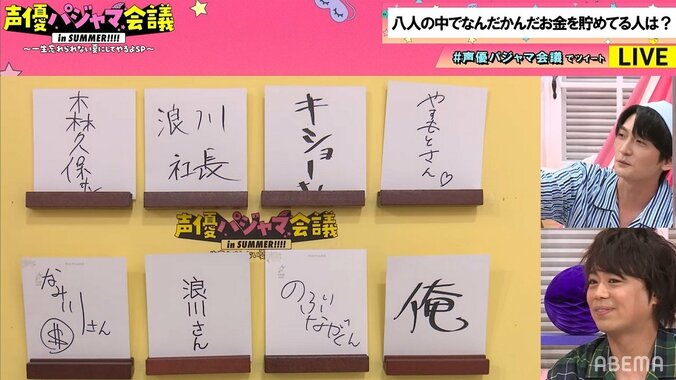 声優パジャマ会議
in SUMMER!!!!
～一生忘れられない夏にしてやるよSP～
八人の中でなんだかんだお金を貯めてる人は？
#声優パジャマ会議でツイート
LIVE
森久保さん
浪川
社長
キショーさん
やまもとさん♡
声優パジャマ会議
in SUMMER!!!!
なみ川さん
$
浪川さん
のぶながくん
俺
ABEMA